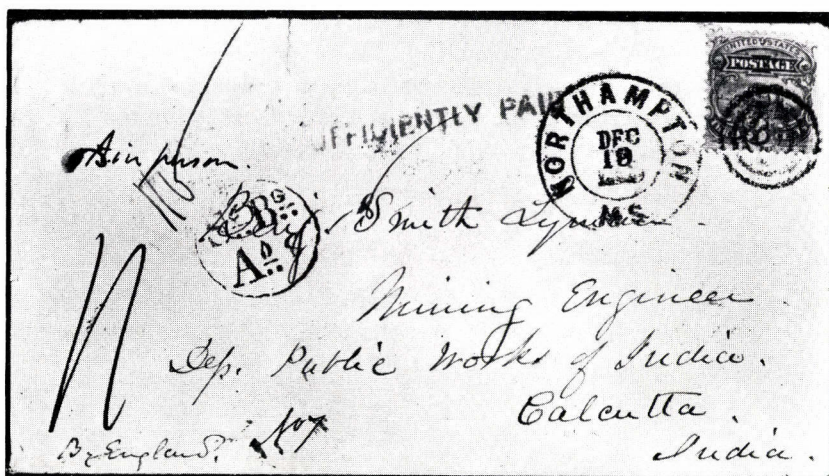 UNITED STATES
POSTAGE
UFFICIENTLY PAID
NORTHAMPTON
DEC
19
MS
Bg.
Ad.
Benj. Smith Lyman
Mining Engineer
Dep. Public Works of India.
Calcutta.
India.
By England.